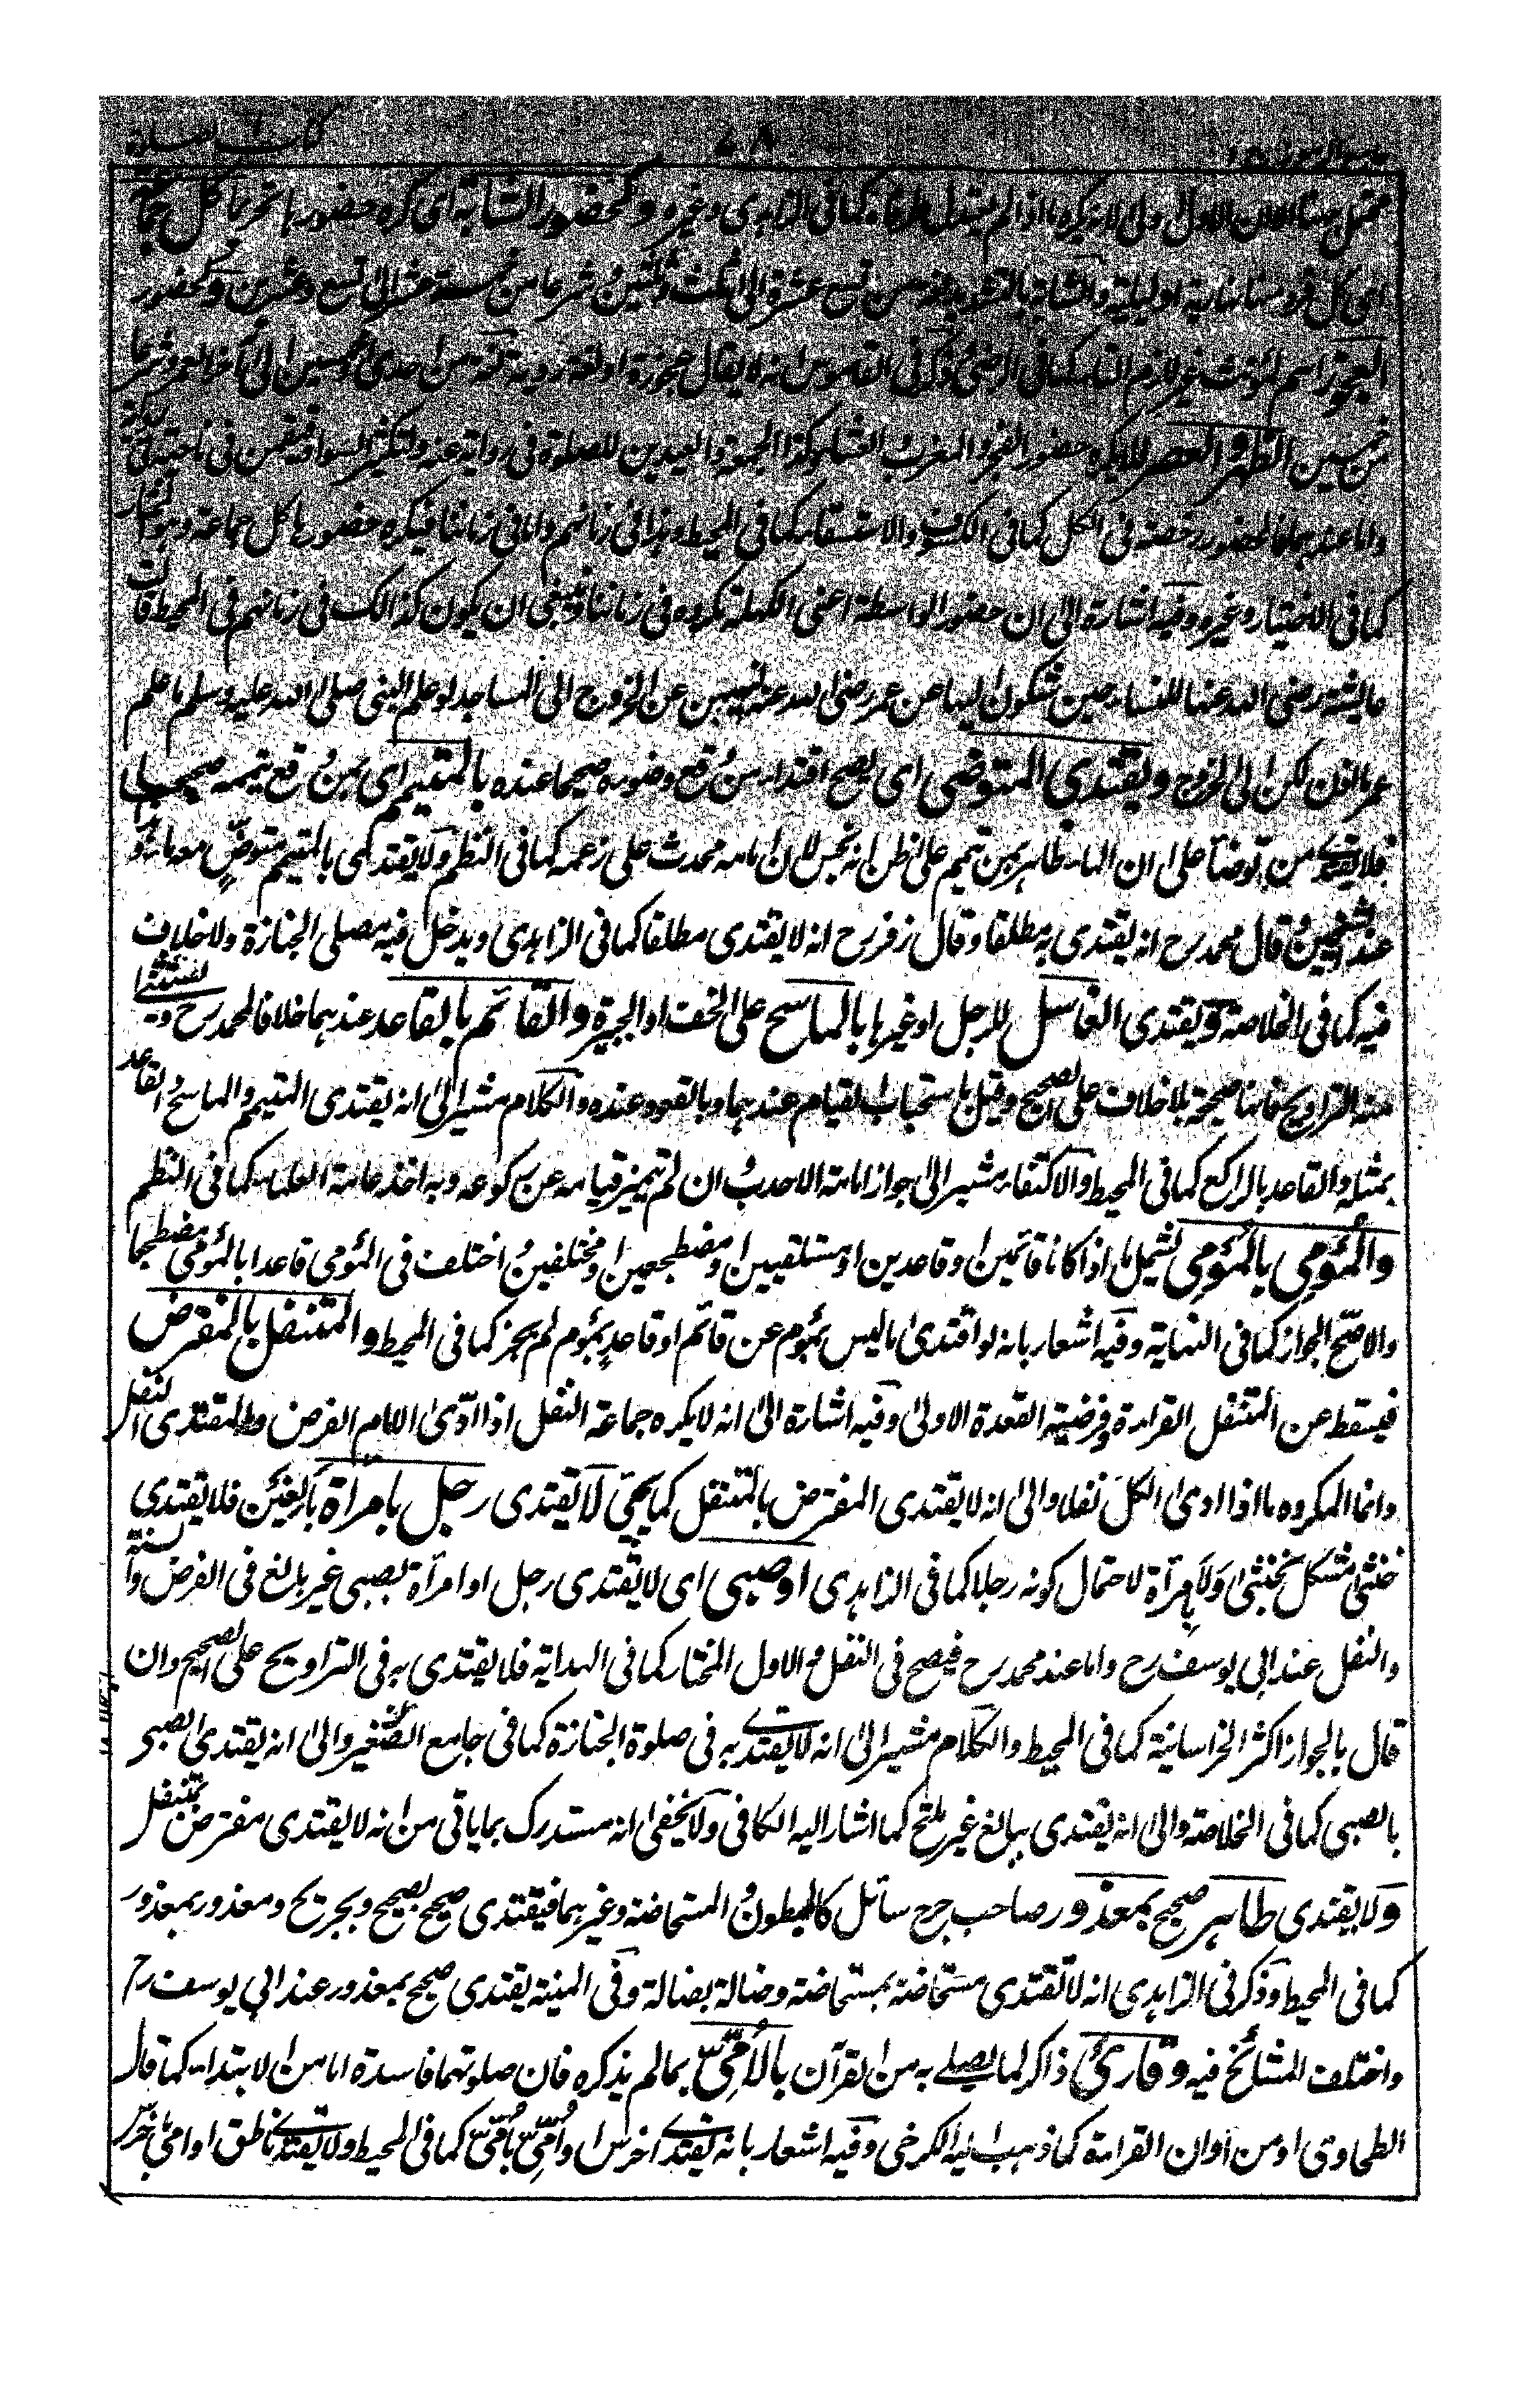 كتاب الصلاة
وكحضور الشابة اى كره حضورها كل جماعة
اى كل فرد من نهارية او ليلية والشابة من تسع عشرة الى ثلث وثلثين شرعا من خمسة عشر الى تسع وعشرين وكحضور
العجوز اسم لمؤنث غير لازم التاء كما فى الرضى وذكر فى القاموس انه لا يقال عجوزة او لغة ردية من احدى وخمسين الى آخر العمر وشرعا
من خمسين الظهر والعصر فلا يكره حضور الفجر والمغرب والعشاء وكذا الجمعة والعيدين للصلوة فى رواية عنه ولتكثير السواد فيقمن فى ناحية فى رواية
واما عندهما فالحضور رخصة فى الكل كما فى الكسوف والاستسقاء كما فى المحيط وهذا فى زمانهم واما فى زماننا فيكره حضورها كل جماعة وهو المختار
كما فى الاختيار وغيره وفيه اشارة الى ان حضور الواسطة اعنى الكهلة مكروه فى زماننا وينبغى ان يكون كذالك فى زمانهم فى المحيط قالت
عايشة رضى الله عنها للنساء حين شكون اليها عن عمر رضى الله عنه لنهيهن عن الخروج الى المساجد لو علم النبى صلى الله عليه وسلم ما علم
عمر ما اذن لكن الى الخروج ويقتدى المتوضى اى يصح اقتداء من وقع وضوءه صحيحا عنده بالمتيمم اى بمن وقع تيممه صحيحا
فلا يقتدى من توضأ على ان الماء طاهر بمن تيمم على ظن انه نجس لان امامه محدث على زعمه كما فى النظم ولا يقتدى بالمتيمم متوض معه ماء
عند الشيخين وقال محمد رح انه يقتدى به مطلقا وقال زفر رح انه لا يقتدى مطلقا كما فى الزاهدى ويدخل فيه مصلى الجنازة ولا خلاف
فيه كما فى الخلاصة ويقتدى الغاسل للرجل او غيرها بالماسح على الخف او الجبيرة والقائم بالقاعد عندهما خلافا لمحمد رح ويستثنى
منه التراويح فانها صحيحة بلا خلاف على الصحيح وقيل باستحباب القيام عندهما وبالقعود عنده والكلام مشير الى انه يقتدى المتيمم والماسح والقاعد
بمثله والقاعد بالراكع كما فى المحيط والاكتفاء مشير الى جواز امامة الاحدب ان لم تميز قيامه عن ركوعه وبه اخذ عامة العلماء كما فى النظم
والمؤمى بالمؤمى يشمل ما اذا كانا قائمين او قاعدين او مستلقيين او مضطجعين او مختلفين واختلف فى المؤمى قاعدا بالمؤمى مضطجعا
والاصح الجواز كما فى النهاية وفيه اشعار بانه لو اقتدى ما ليس بمؤم عن قائم او قاعد بمؤم لم يجز كما فى المحيط والمتنفل بالمفترض
فيسقط عن المتنفل القراءة وفرضية القعدة الاولى وفيه اشارة الى انه لا يكره جماعة النفل اذا ادى الامام الفرض والمقتدى النفل
وانما المكروه ما اذا ادى الكل نفلا والى انه لا يقتدى المفترض بالمتنفل كما يجئ لا يقتدى رجل بامرأة بالغين فلا يقتدى
خنثى مشكل بخنثى ولا بامرأة لاحتمال كونه رجلا كما فى الزاهدى او صبى اى لا يقتدى رجل او امرأة بصبى غير بالغ فى الفرض والسنة
والنفل عند ابى يوسف رح واما عند محمد رح فيصح فى النفل والاول المختار كما فى الهداية فلا يقتدى به فى التراويح على الصحيح وان
قال بالجواز اكثر الخراسانية كما فى المحيط والكلام مشير الى انه لا يقتدى به فى صلوة الجنازة كما فى جامع الصغير والى انه يقتدى الصبى
بالصبى كما فى الخلاصة والى انه يقتدى ببالغ غير ملتح كما اشار اليه الكافى ولا يخفى انه مستدرك بما ياتى من انه لا يقتدى مفترض بمتنفل
ولا يقتدى طاهر صحيح بمعذور صاحب جرح سائل كالمبطون والمستحاضة وغيرهما فيقتدى صحيح بصحيح وبجريح ومعذور بمعذور
كما فى المحيط وذكر فى الزاهدى انه لا تقتدى مستحاضة بمستحاضة وضالة بضالة وفى المنية يقتدى صحيح بمعذور عند ابى يوسف رح
واختلف المشائخ فيه وقارئ ذاكر لما يصلى به من القرآن بالامى بما لم يذكره فان صلوتهما فاسدة اما من الابتداء كما قال
الطحاوى او من اوان القراءة كما ذهب اليه الكرخى وفيه اشعار بانه يقتدى اخرس او امى بامى كما فى المحيط ولا يقتدى ناطق او امى باخرس